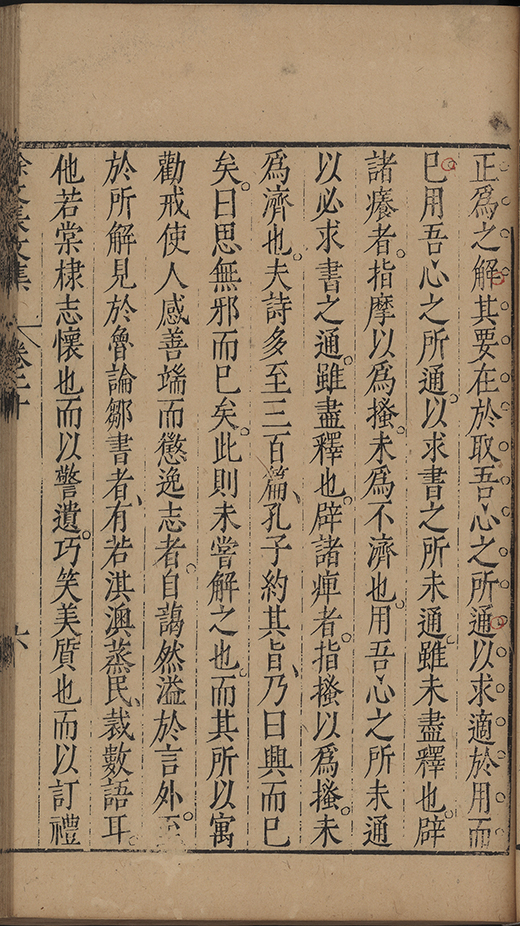 正爲之解其要在於取吾心之所通以求適於用而
已用吾心之所通以求書之所未通雖未盡釋也辟
諸癢者指摩以爲搔未爲不濟也用吾心之所未通
以必求書之通雖盡釋也辟諸痺者指搔以爲搔未
爲濟也夫詩多至三百篇孔子約其旨乃曰興而已
矣曰思無邪而已矣此則未嘗解之也而其所以寓
勸戒使人感善端而懲逸志者自藹然溢於言外至
於所解見於魯論鄒書者有若淇澳蒸民裁數語耳
他若棠棣志懷也而以警遺巧笑美質也而以訂禮
徐文長文集
卷二十
六